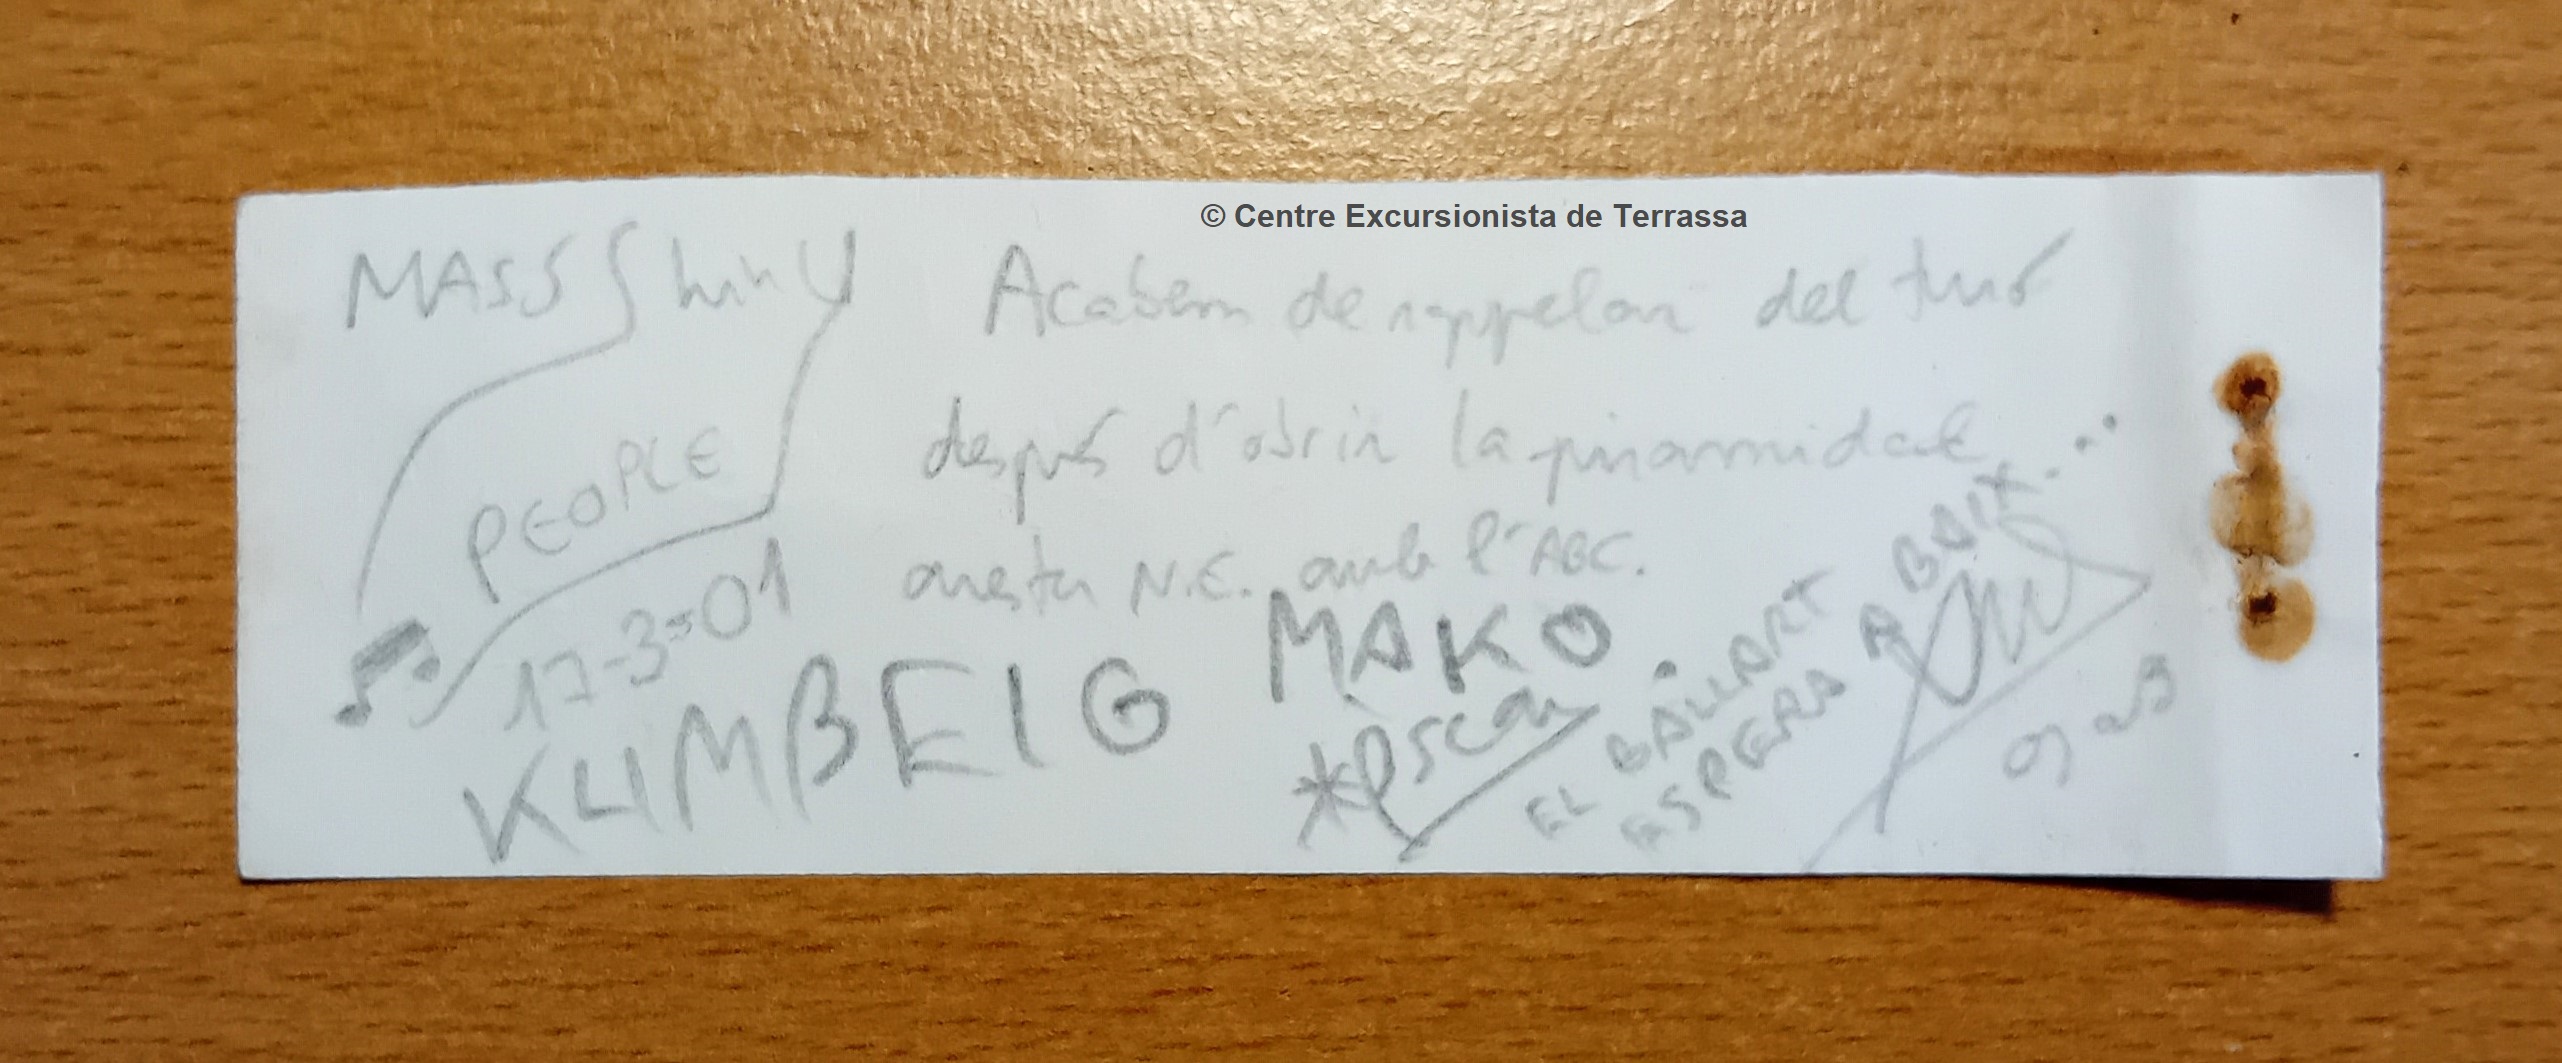 © Centre Excursionista de Terrassa
MASS Shiny
PEOPLE
17-3-01
Acabem de rappelar del turó
després d'obrir la piramidal
aresta N.E. amb l'ABC.
KUMBEIG
MAKO
*Oscar
EL BALLART
ESPERA A BAIX...